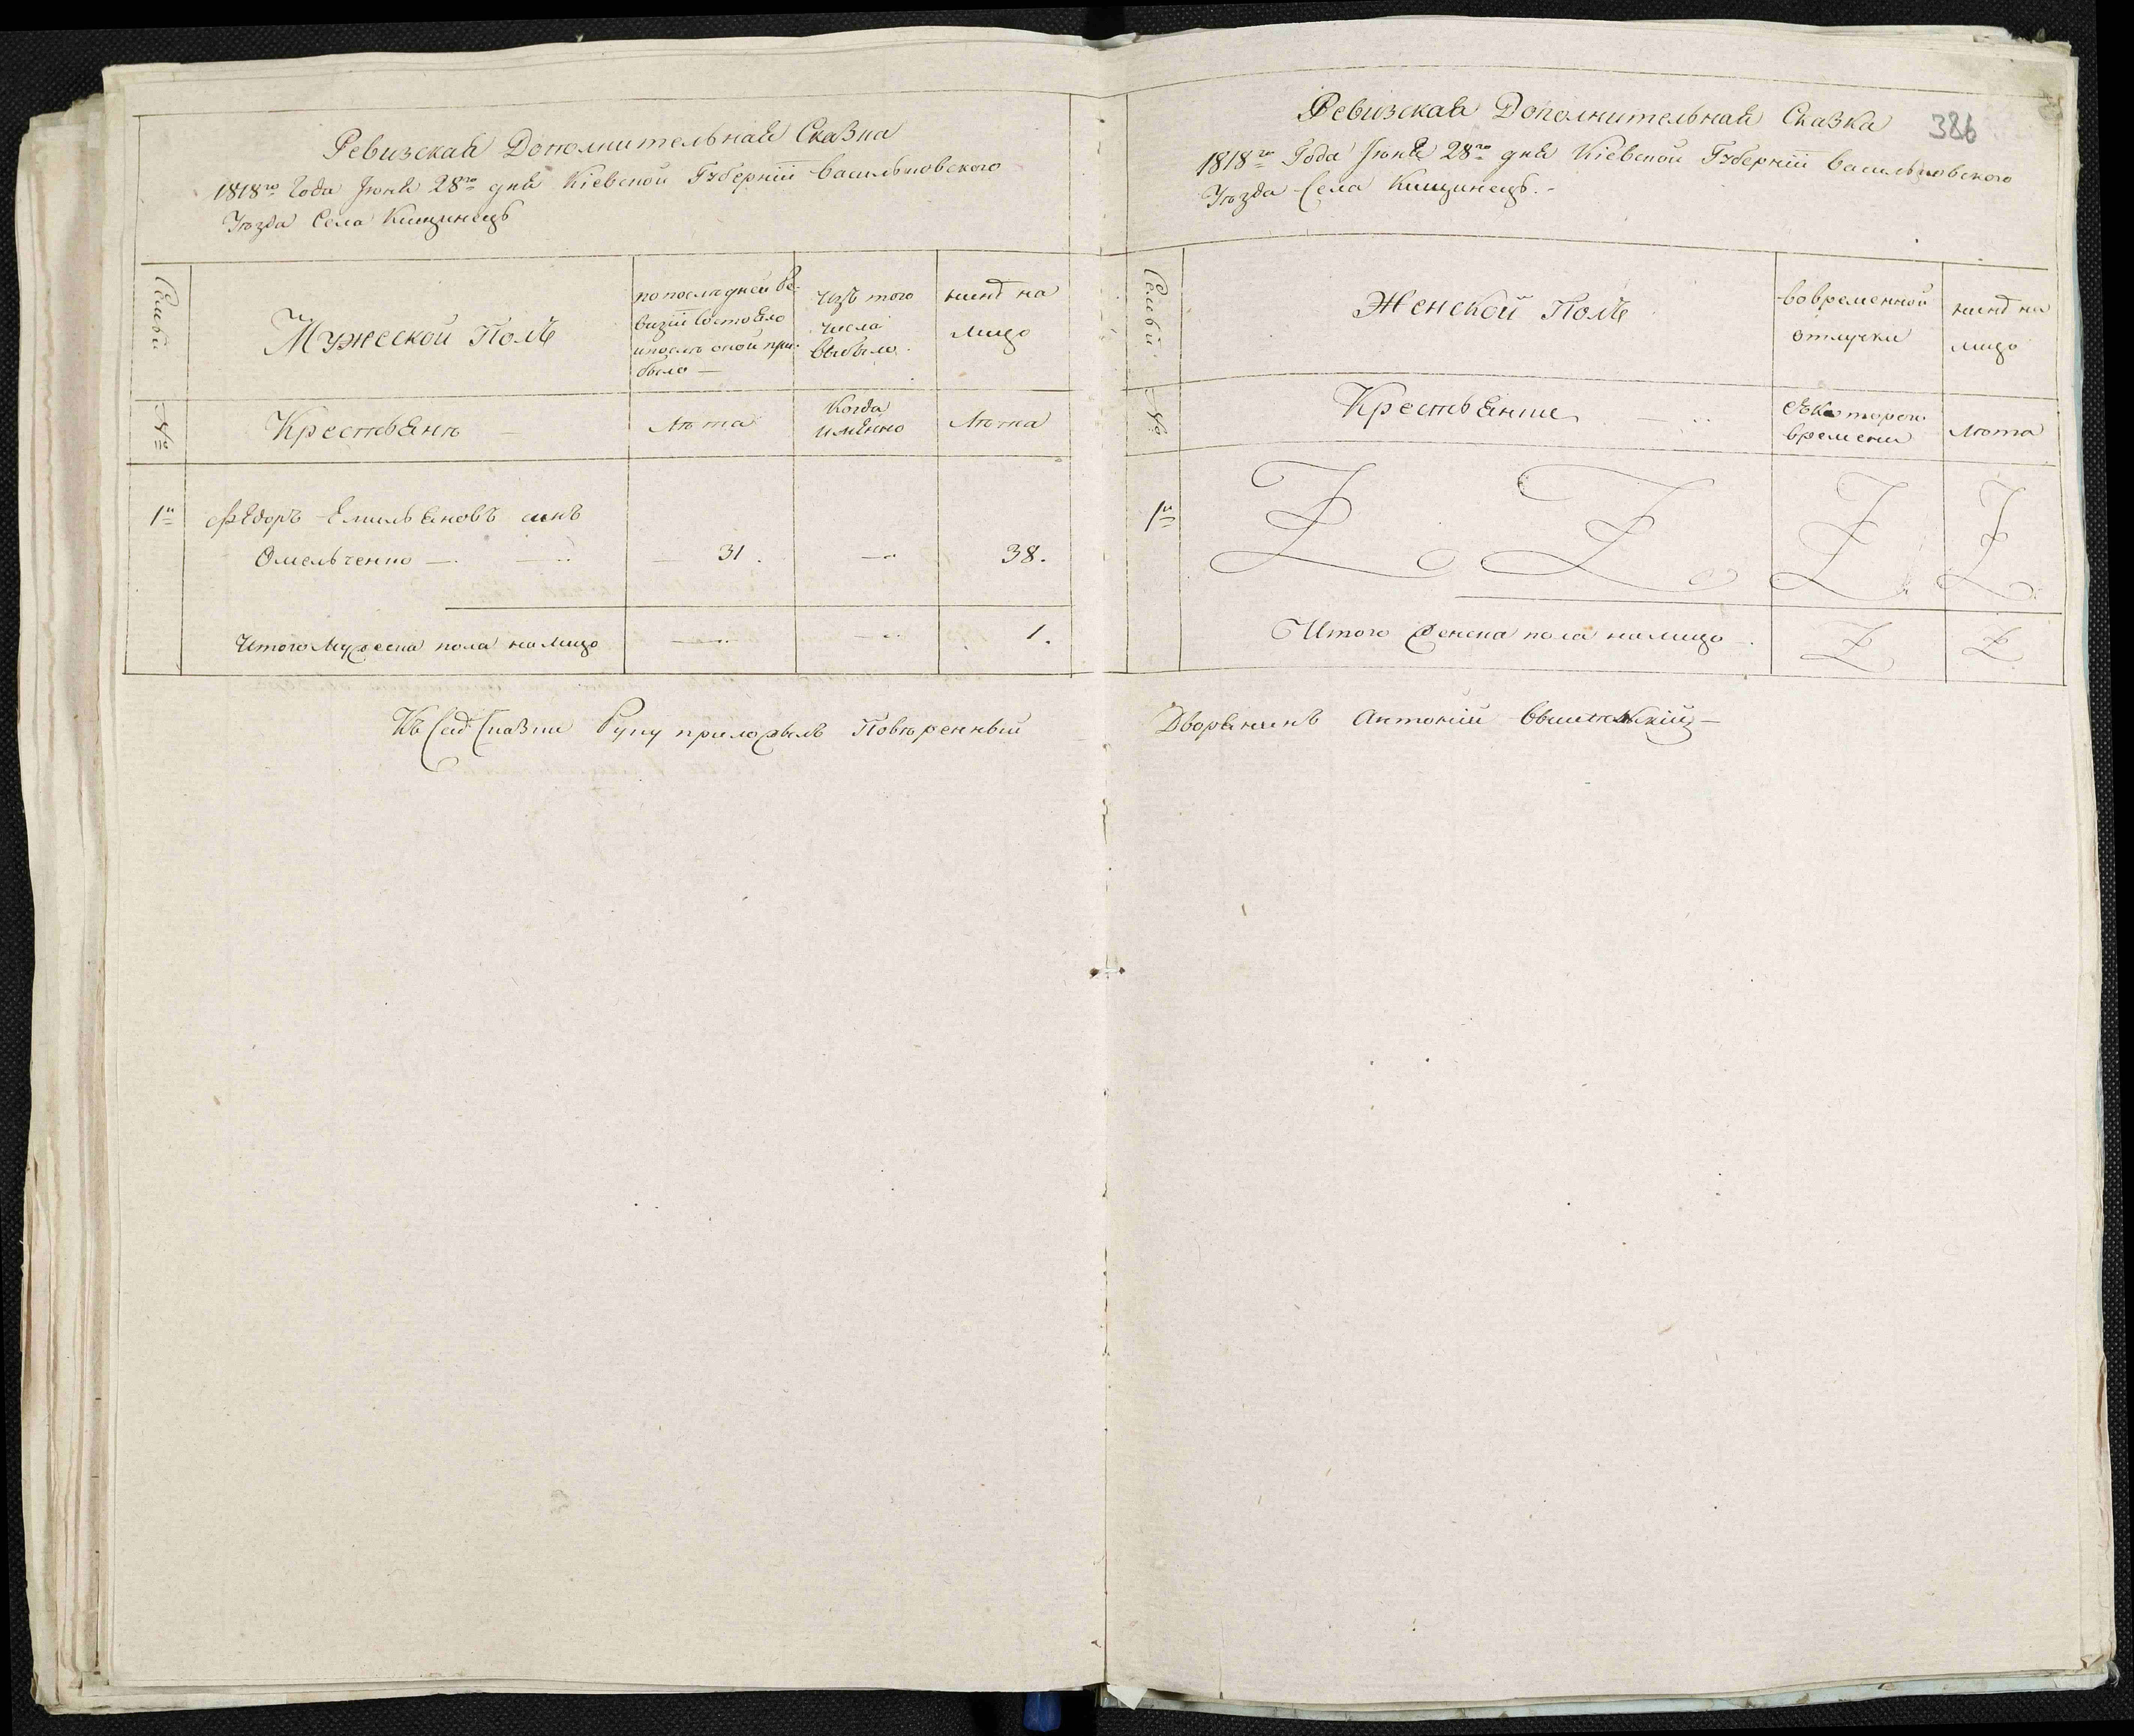 Ревизская Дополнительная Сказка
1818го Года Июня 28го дня Кіевской Губерніи Васильковского
Уѣзда Села Кищинецъ
Семьи
Мужеской Полъ
по последней Ре-
визіи Состояло
и послѣ оной при-
было —
Изъ того
числа
выбыло
нинѣ на
лицо
№
Крестьянѣ
Лѣта
Когда
имянно
Лѣта
1й Федоръ Емильяновъ синъ
Омельченко — — 31. — 38.
Итого Мужеска пола на лицо — — 1.
Къ Сей Сказки Руку приложылъ Повѣренный
386
Ревизская Дополнительная Сказка
1818го Года Июня 28го дня Кіевской Губерніи Васильковского
Уѣзда Села Кищинецъ.-
Семьи
Женской Полъ
во временной
отлучки
нинѣ на
лицо
№
Крестьянки
съ Которого
времени
Лѣта
1й
Итого Женска пола на лицо —.
Дворянинъ Антоній —